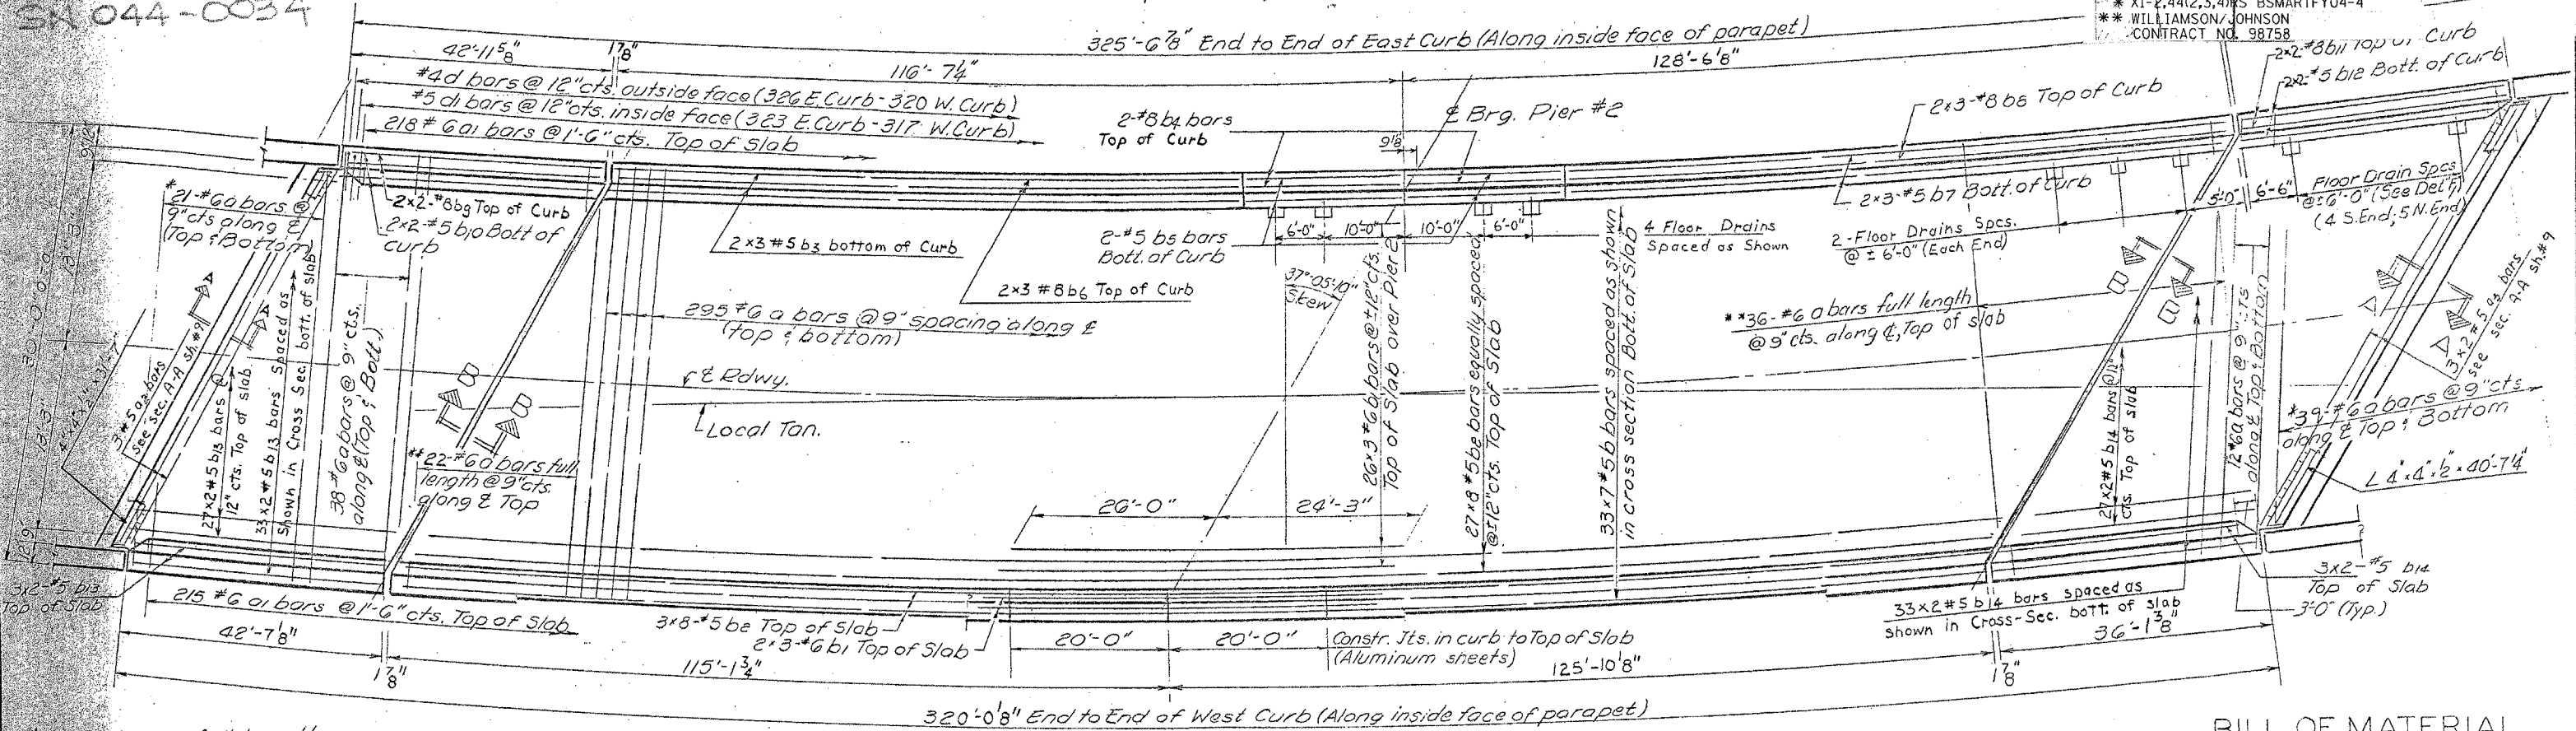 SN 044-0034
* X1-2,44(2,3,4)RS BSMARTFY04-4
** WILLIAMSON/JOHNSON
CONTRACT NO. 98758
325'-6 7/8" End to End of East Curb (Along inside face of parapet)
42'-11 5/8"
1 7/8"
116'-7 1/4"
128'-6 1/8"
2x2-#8 b11 Top of Curb
2x2-#5 b12 Bott. of Curb
#4 d bars @ 12" cts. outside face (326 E. Curb - 320 W. Curb)
#5 d1 bars @ 12" cts. inside face (323 E. Curb - 317 W. Curb)
218 #6 a1 bars @ 1'-6" cts. Top of Slab
2-#8 b4 bars
Top of Curb
℄ Brg. Pier #2
9 1/8"
2x3-#8 b8 Top of Curb
*21-#6 a bars @
9" cts along ℄
(Top & Bottom)
2x2-#8 b9 Top of Curb
2x2-#5 b10 Bott of
curb
2x3 #5 b3 bottom of Curb
2x3 #8 b6 Top of Curb
2-#5 b5 bars
Bott. of Curb
6'-0"
10'-0"
10'-0"
6'-0"
4 Floor Drains
Spaced as Shown
2x3-#5 b7 Bott. of Curb
2-Floor Drains Spcs.
@ ± 6'-0" (Each End)
5'-0"
6'-6"
Floor Drain Spcs
@ ± 6'-0" (See Det. F)
(4 S. End; 5 N. End)
30'-0"
13'-3"
18'-3"
3-#5 a2 bars
see sec. A-A sh.#9
27x2 #5 b13 bars @
12" cts. Top of slab
33x2 #5 b13 bars Spaced as
shown in Cross Sec. bott. of slab
38-#6 a bars @ 9" cts.
along ℄ (Top & Bott.)
295 #6 a bars @ 9" spacing along ℄
(top & bottom)
℄ Rdwy.
Local Tan.
B
B
**22-#6 a bars full
length @ 9" cts.
along ℄ Top
37°-05'-10"
Skew
26x3 #6 b1 bars @ ± 12" cts.
Top of Slab over Pier 2
27x8 #5 be bars equally spaced
@ ± 12" cts. Top of Slab
33x7 #5 b bars spaced as shown
in cross section Bott. of Slab
**36-#6 a bars full length
@ 9" cts. along ℄, Top of slab
B
B
A
A
27x2 #5 b14 bars @ 12"
cts. Top of slab
12 #6 a bars @ 9" cts
along ℄ Top & Bottom
3x2 #5 a3 bars
see sec. A-A sh.#9
*39-#6 a bars @ 9" cts
along ℄ Top & Bottom
L 4"x4"x1/2"x40'-7 1/4"
26'-0"
24'-3"
3x2-#5 b13
Top of Slab
215 #6 a1 bars @ 1'-6" cts. Top of Slab
3x8-#5 be Top of Slab
2x3-#6 b1 Top of Slab
20'-0"
20'-0"
Constr. Jts. in curb to Top of Slab
(Aluminum sheets)
33x2 #5 b14 bars spaced as
shown in Cross-Sec. bott. of slab
3x2-#5 b14
Top of Slab
3'-0" (Typ.)
42'-7 1/8"
1 7/8"
115'-1 3/4"
125'-10 1/8"
1 7/8"
36'-1 3/8"
320'-0 1/8" End to End of West Curb (Along inside face of parapet)
BILL OF MATERIAL